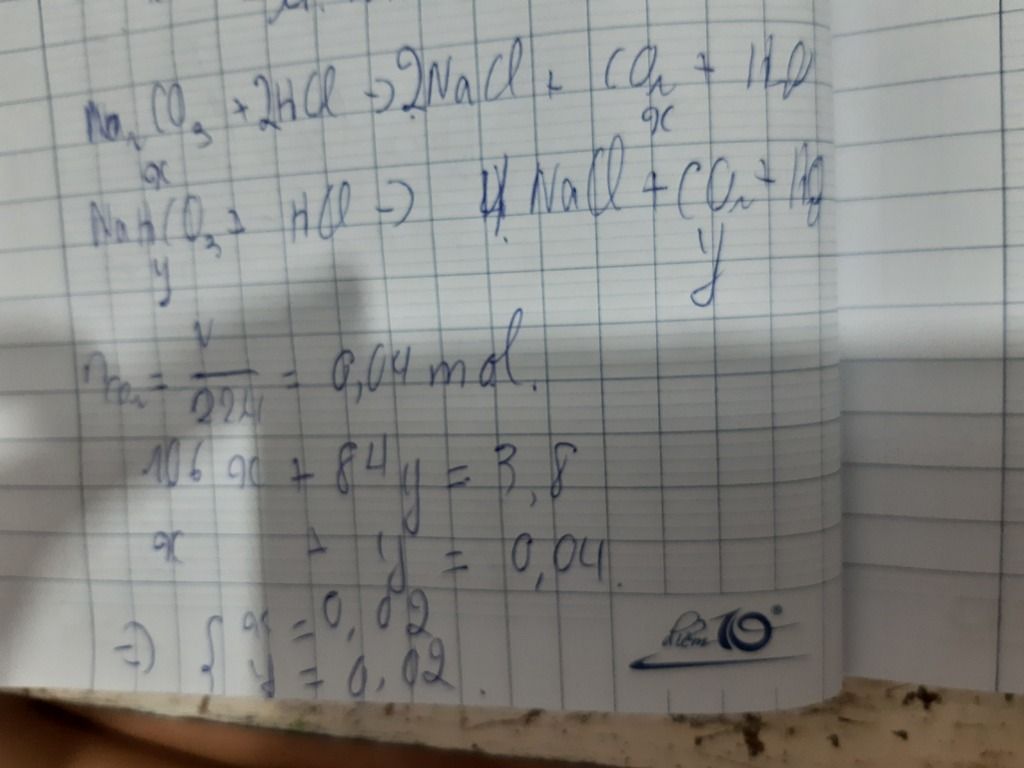 Na₂CO₃ + 2HCl → 2NaCl + CO₂ + H₂O
x x
NaHCO₃ + HCl → NaCl + CO₂ + H₂O
y y
nCO₂ = V/22,4 = 0,04 mol.
106x + 84y = 3,8
x + y = 0,04.
⇒ { x = 0,02
y = 0,02.
điểm 10